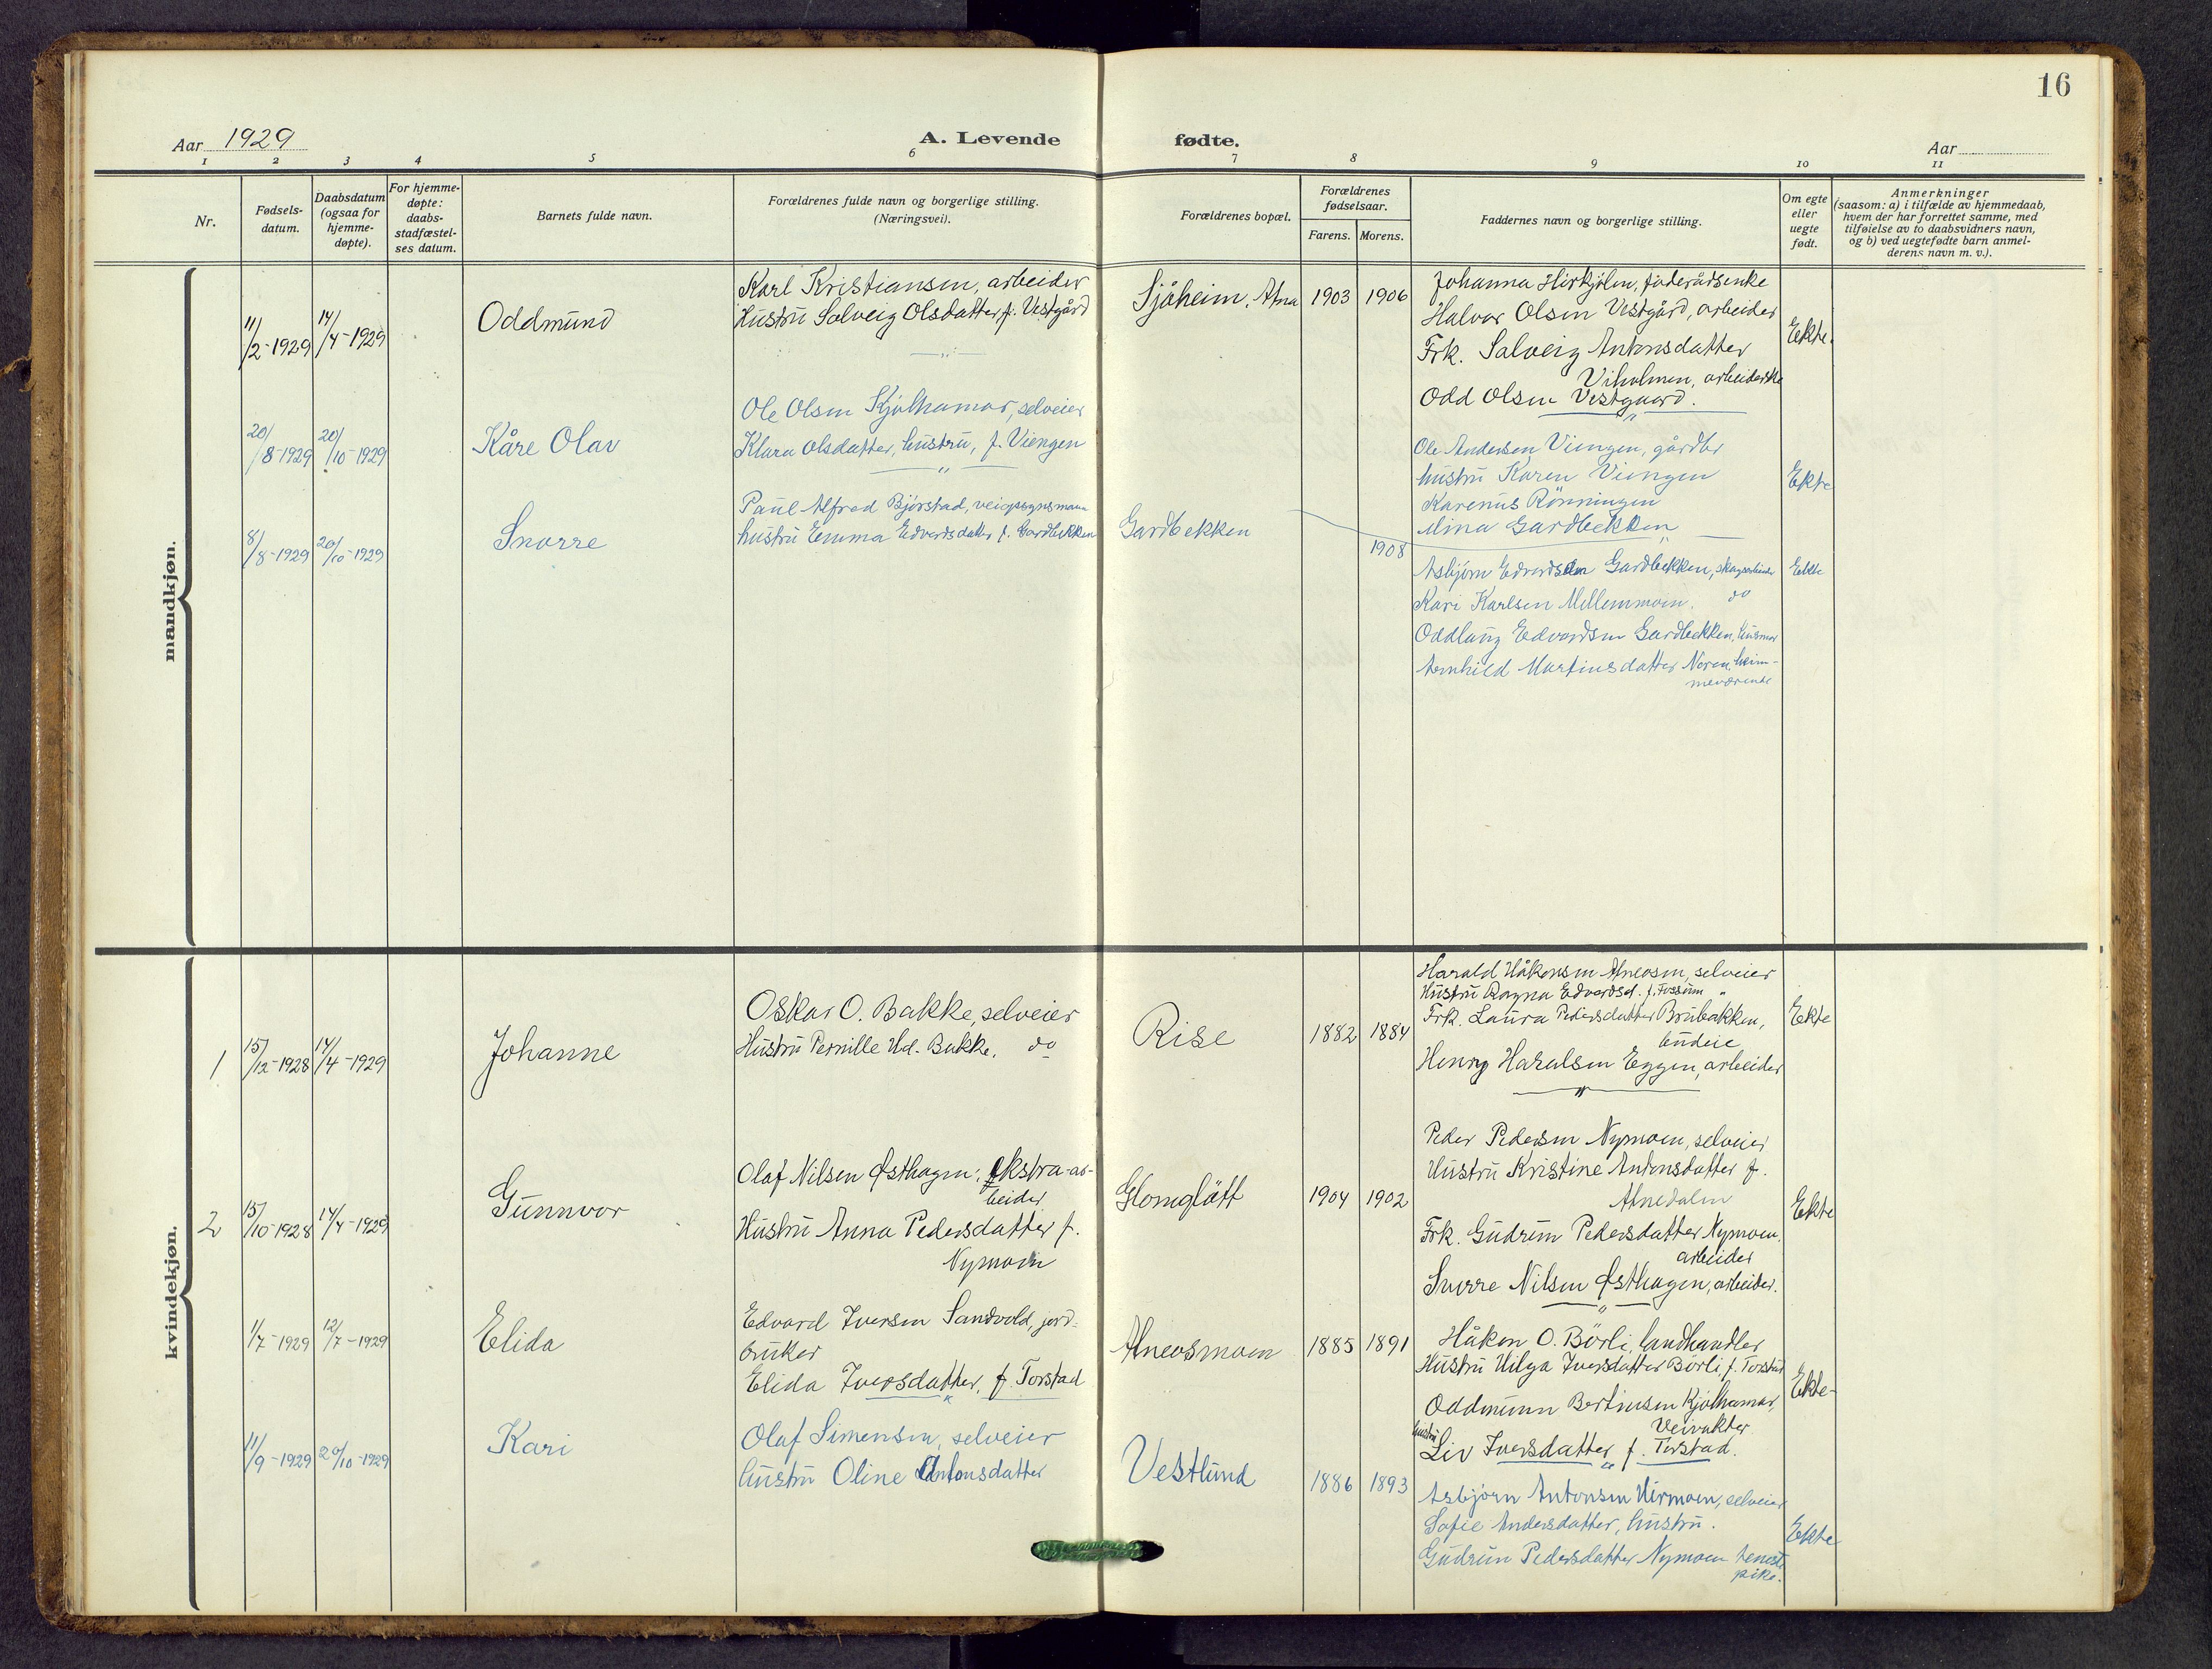 16
Aar 1929
A. Levende fødte.
Aar
1 2 3 4 5 6 7 8 9 10 11
Nr.
Fødsels-
datum.
Daabsdatum
(ogsaa for
hjemme-
døpte).
For hjemme-
døpte:
daabs-
stadfæstel-
ses datum.
Barnets fulde navn.
Forældrenes fulde navn og borgerlige stilling.
(Næringsvei).
Forældrenes bopæl.
Forældrenes
fødselsaar.
Farens. Morens.
Faddernes navn og borgerlige stilling.
Om egte
eller
uegte
født.
Anmerkninger
(saasom: a) i tilfælde av hjemmedaab,
hvem der har forrettet samme, med
tilføielse av to daabsvidners navn,
og b) ved uegtefødte barn anmel-
derens navn m. v.).
mandkjøn.
11/2-1929 14/4-1929
Oddmund
Karl Kristiansen, arbeider
Hustru Solveig Olsdatter f. Vestgård
Sjøheim, Atna
1903 1906
Johanna Hirkjølen, føderådsenke
Halvor Olsen Vestgård, arbeider
Frk. Solveig Antonsdatter
Viholmen, arbeiderske
Odd Olsen Vestgaard.
Ekte.
20/8-1929 20/10-1929
Kåre Olav
Ole Olsen Kjølhamar, selveier
Klara Olsdatter, hustru, f. Viengen
Ole Andersen Viengen, gårdbr
hustru Karen Viengen
Karenus Rönningen
Mina Gardbekken
Ekte
8/8-1929 20/10-1929
Snorre
Paul Alfred Bjørstad, veiopsynsmann
hustru Emma Edvardsdatter f. Gardbekken
Gardbekken
1908
Asbjørn Edvardsen Gardbekken, skogsarbeider
Kari Karlsen Mellemmoen. do
Oddlaug Edvardsen Gardbekken, husmor
Arnhild Martinsdatter Noren, heim-
meværende
Ekte
kvindekjøn.
1
15/12-1928 14/4-1929
Johanne
Oskar O. Bakke, selveier
Hustru Pernille Hd. Bakke. do
Rise
1882 1884
Harald Håkonsen Atneosen, selveier
Hustru Ragna Edvardsd. f. Fossum "
Frk. Laura Pedersdatter Brubakken,
budeie
Henry Haralsen Eggen, arbeider
Ekte
2
15/10-1928 14/4-1929
Gunnvor
Olaf Nilsen Østhagen; Ekstra-ar-
beider
Hustru Anna Pedersdatter f.
Nymoen
Glomgløtt
1904 1902
Peder Pedersen Nymoen, selveier
Hustru Kristine Antonsdatter f.
Atnedalen
Frk. Gudrun Pedersdatter Nymoen,
arbeider
Snorre Nilsen Østhagen, arbeider.
Ekte
1/7-1929 12/7-1929
Elida
Edvard Iversen Sandvold, jord-
bruker
Elida Iversdatter, f. Torstad
Atneosmoen
1885 1891
Håkon O. Börli, landhandler
Hustru Helga Iversdatter Börli, f. Torstad
Oddmunn Bertinsen Kjølhamar,
Veivakter
hustru
Liv Iversdatter f. Torstad.
Ekte-
11/9-1929 20/10-1929
Kari
Olaf Simensen, selveier
hustru Oline Antonsdatter
Vestlund
1886 1893
Asbjørn Antonsen Nermoen, selveier
Sofie Andersdatter, hustru.
Gudrun Pedersdatter Nymoen tenest
pike.
Ekte